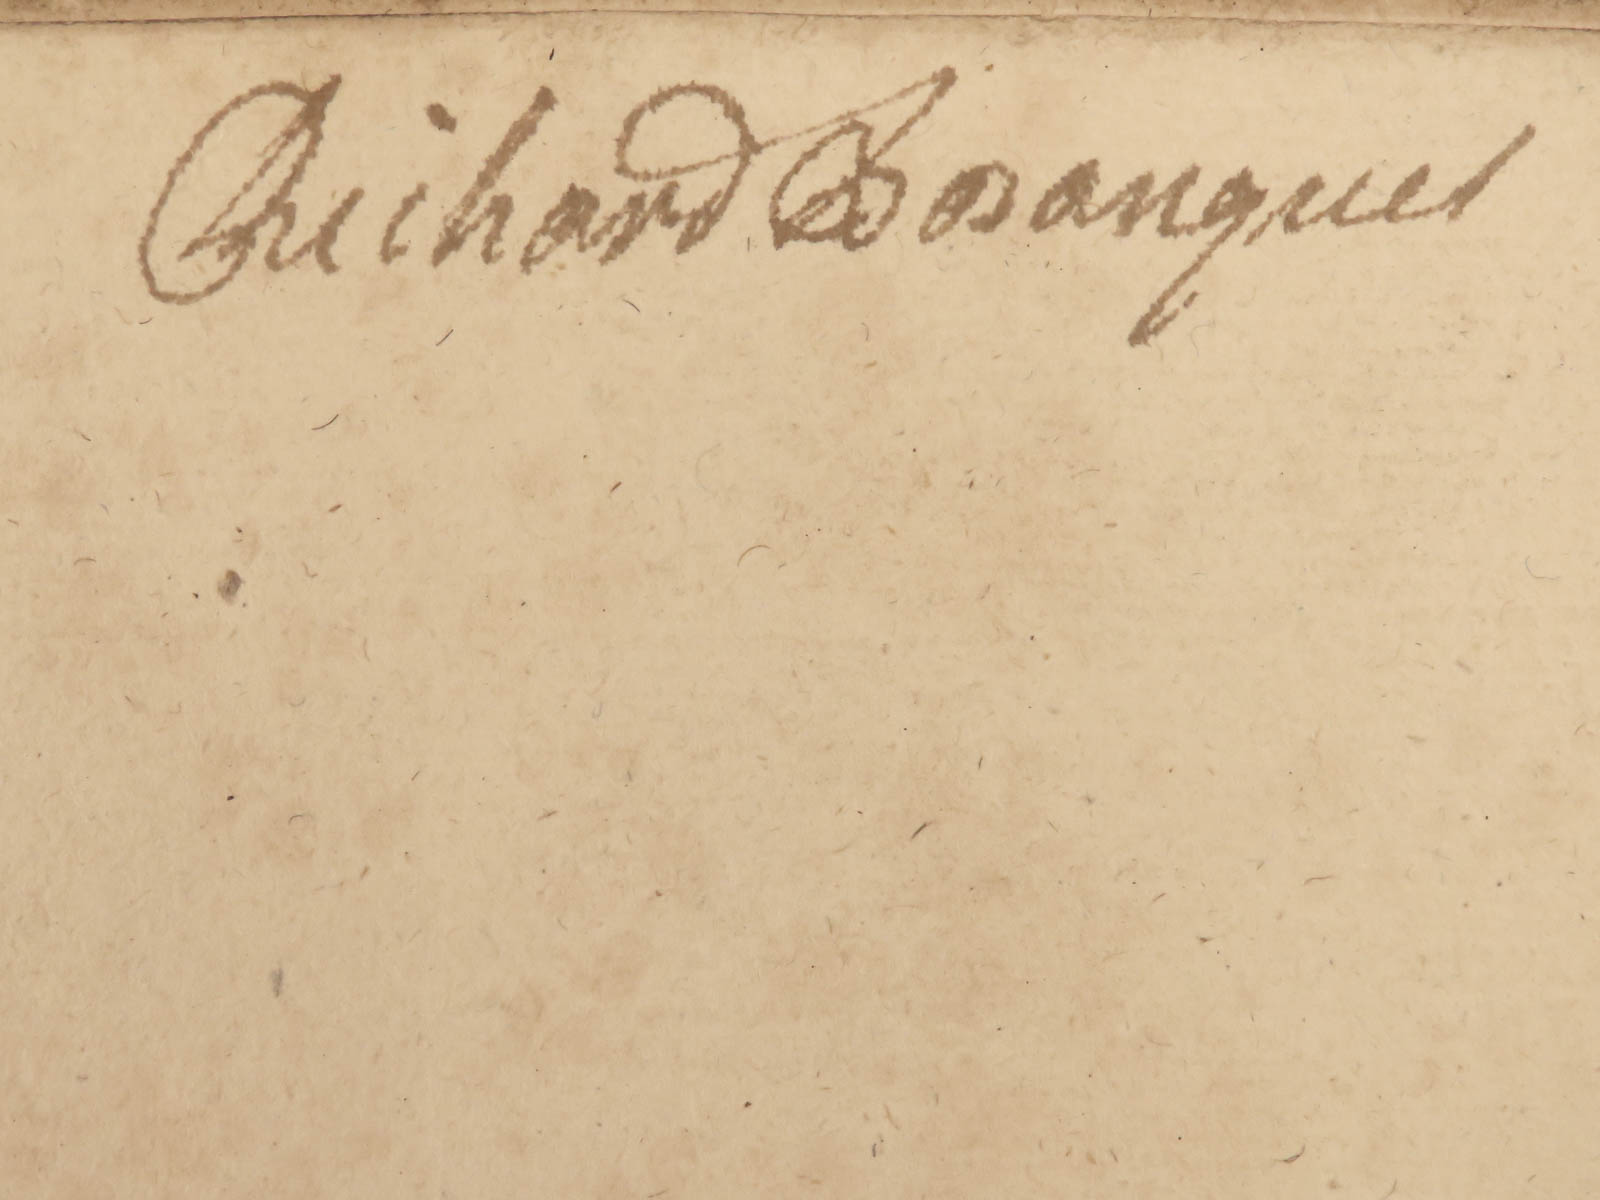 Richard Bosanquet